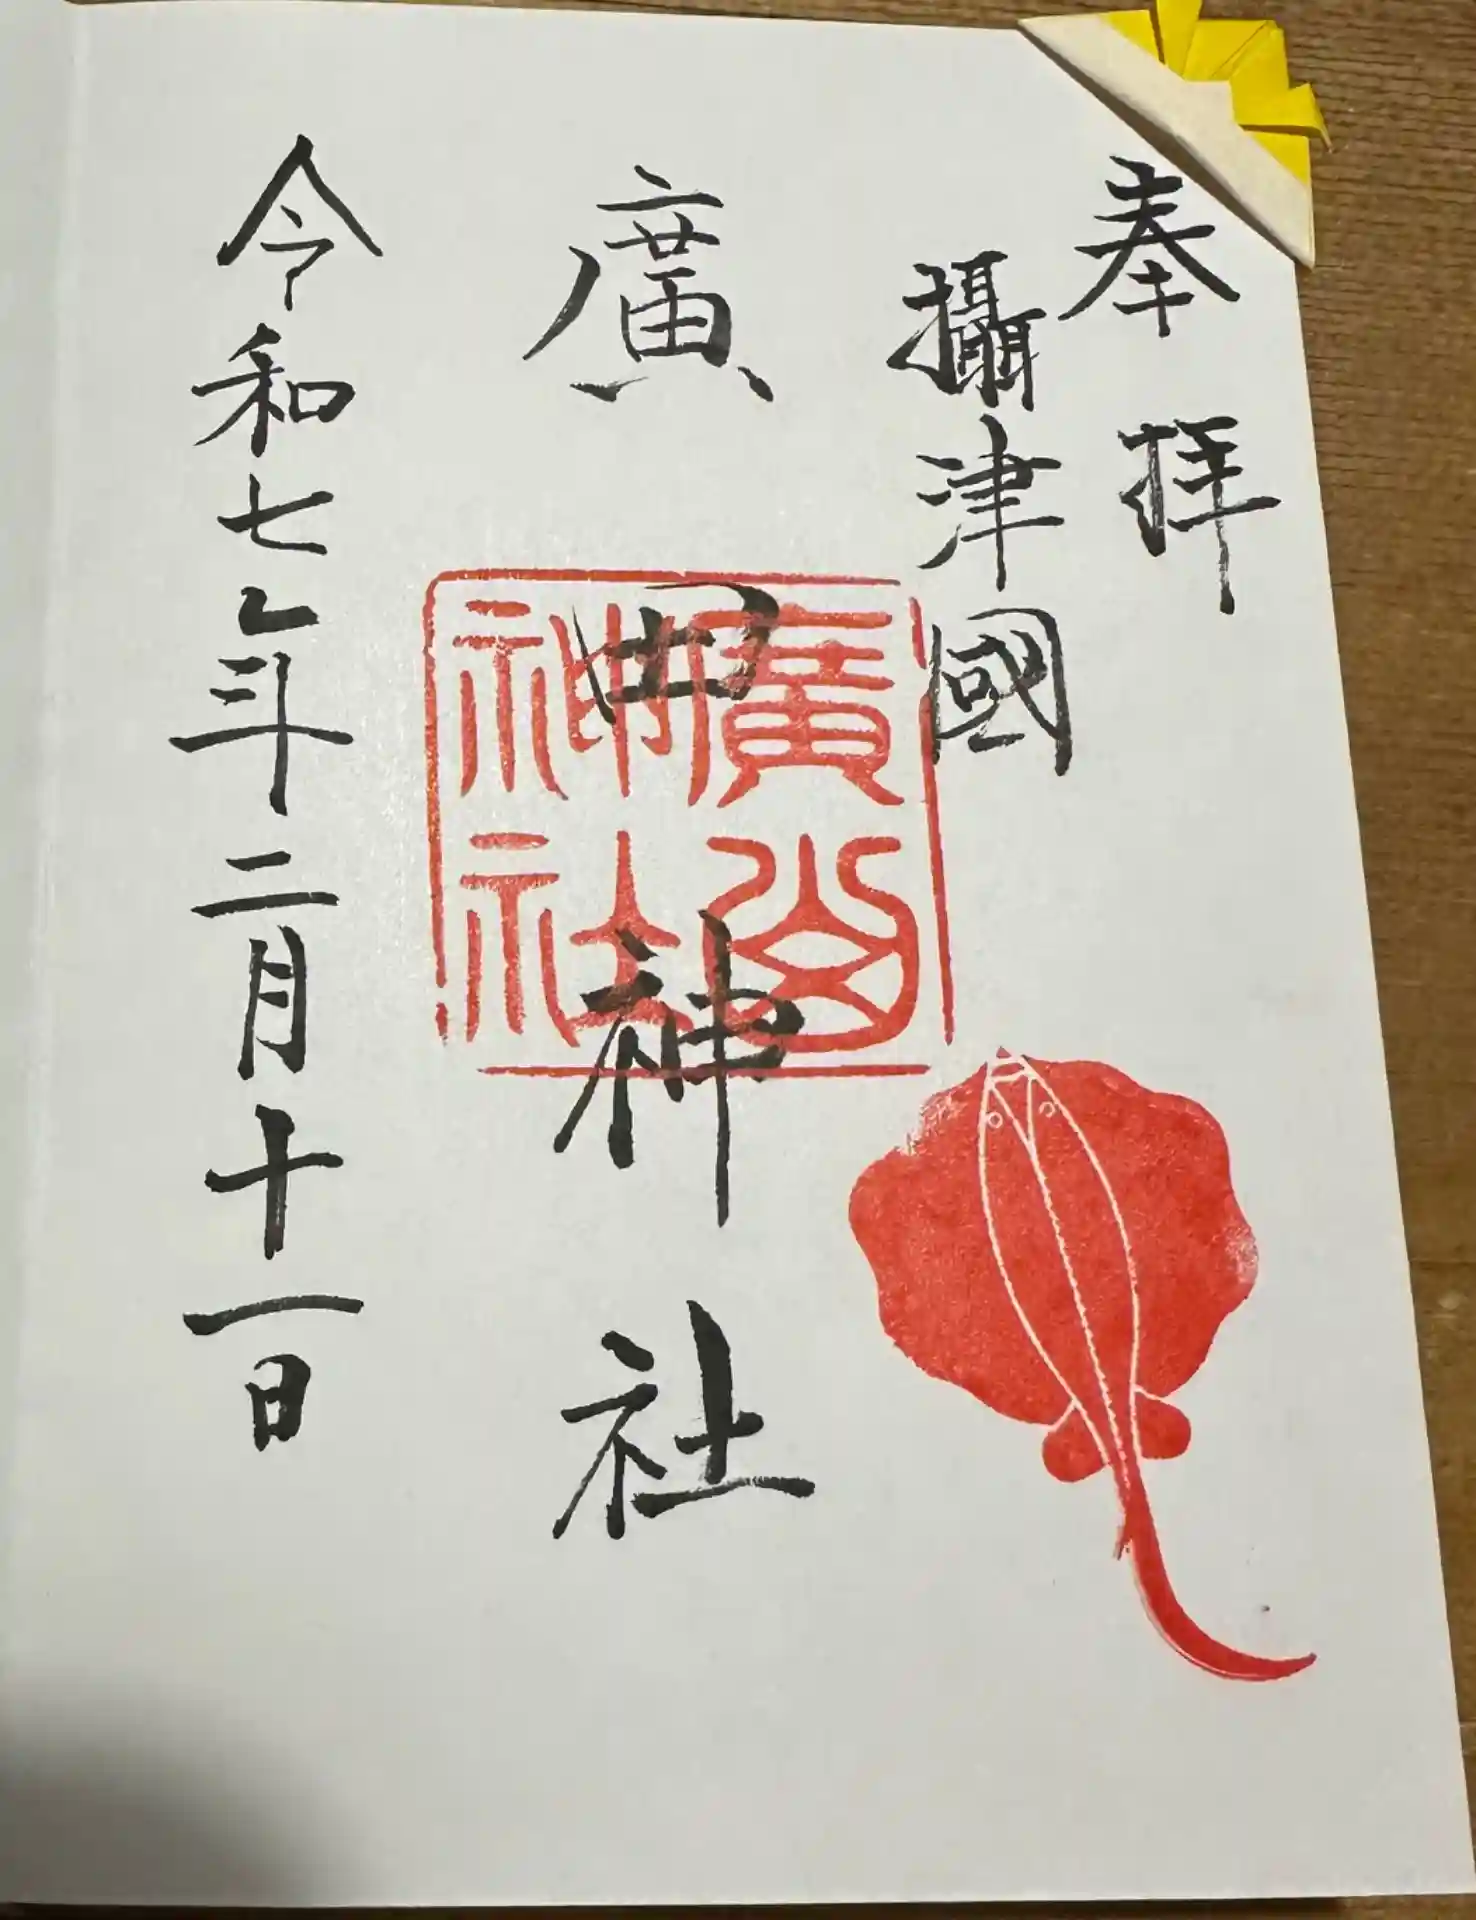 奉拝
攝津國
廣田神社
令和七年二月十一日
廣田
神社